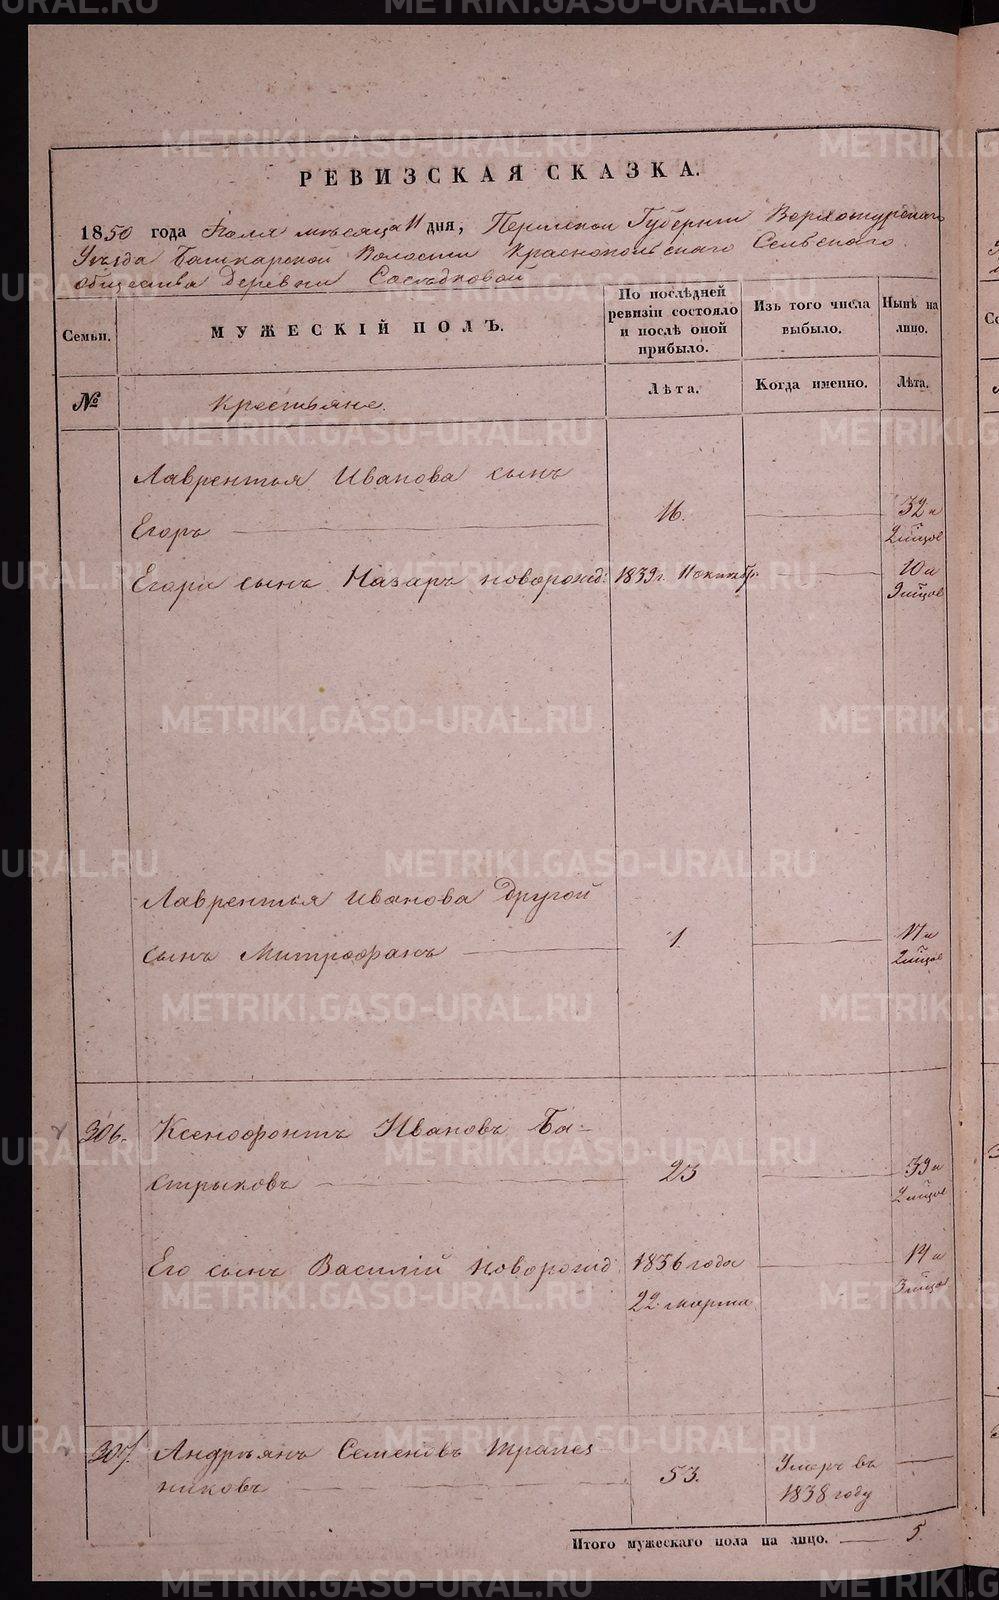 METRIKI.GASO-URAL.RU
РЕВИЗСКАЯ СКАЗКА.
1850 года Іюля мѣсяца 11 дня, Пермской Губерніи Верхотурскаго
Уѣзда Башкарской Волости Краснопольскаго Сельскаго
общества Деревни Сосѣдковой
Семьи.
МУЖЕСКІЙ ПОЛЪ.
По послѣдней
ревизіи состояло
и послѣ оной
прибыло.
Изъ того числа
выбыло.
Нынѣ на
лицо.
№
Крестьяне.
Лѣта.
Когда именно.
Лѣта.
Лаврентья Иванова сынъ
Егоръ 16. 32 и
2 мѣсцов
Егора сынъ Назаръ новорожд: 1839 г. 11 октябр. 10 и
9 мѣсцов
Лаврентья Иванова другой
сынъ Митрофанъ 1 17 и
2 мѣсцов
306. Ксенофонтъ Ивановъ Ба-
стрыковъ 23 39 и
2 мѣсцов
Его сынъ Василій новорожд: 1836 года 14 и
22 марта 3 мѣсцов
307. Андреянъ Семеновъ Трапез
никовъ 53. Умеръ въ
1838 году
Итого мужескаго пола на лицо. 5.